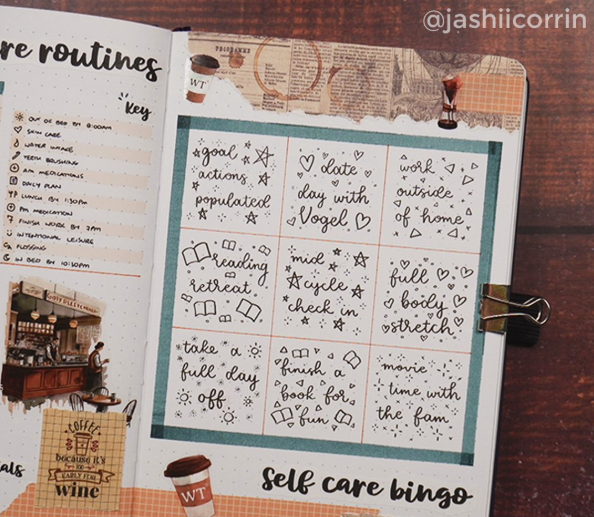 @jashiicorrin
re routines
Key
OUT OF BED BY 8:00AM
SKIN CARE
WATER INTAKE
TEETH BRUSHING
AM MEDICATIONS
DAILY PLAN
LUNCH BY 1:30PM
PM MEDICATION
FINISH WORK BY 7PM
INTENTIONAL LEISURE
FLOSSING
IN BED BY 10:30PM
COFFEE
because it's
too
EARLY FOR
wine
als
PROGRAMME
WT
goal
actions
populated
date
day with
Vogel
work
outside
of home
reading
retreat
mid
cycle
check in
full
body
stretch
take a
full day
off
finish a
book for
fun
movie
time with
the fam
WT
Self care bingo